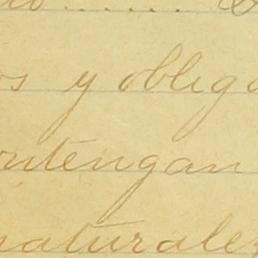 y obliga
ntengan
naturalez